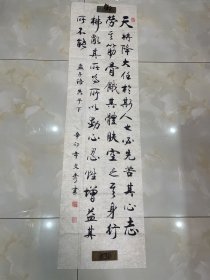 天将降大任於斯人也必先苦其心志
劳其筋骨餓其體膚空乏其身行
拂亂其所為所以動心忍性增益其
所不能 孟子 告子下
辛卯年文書